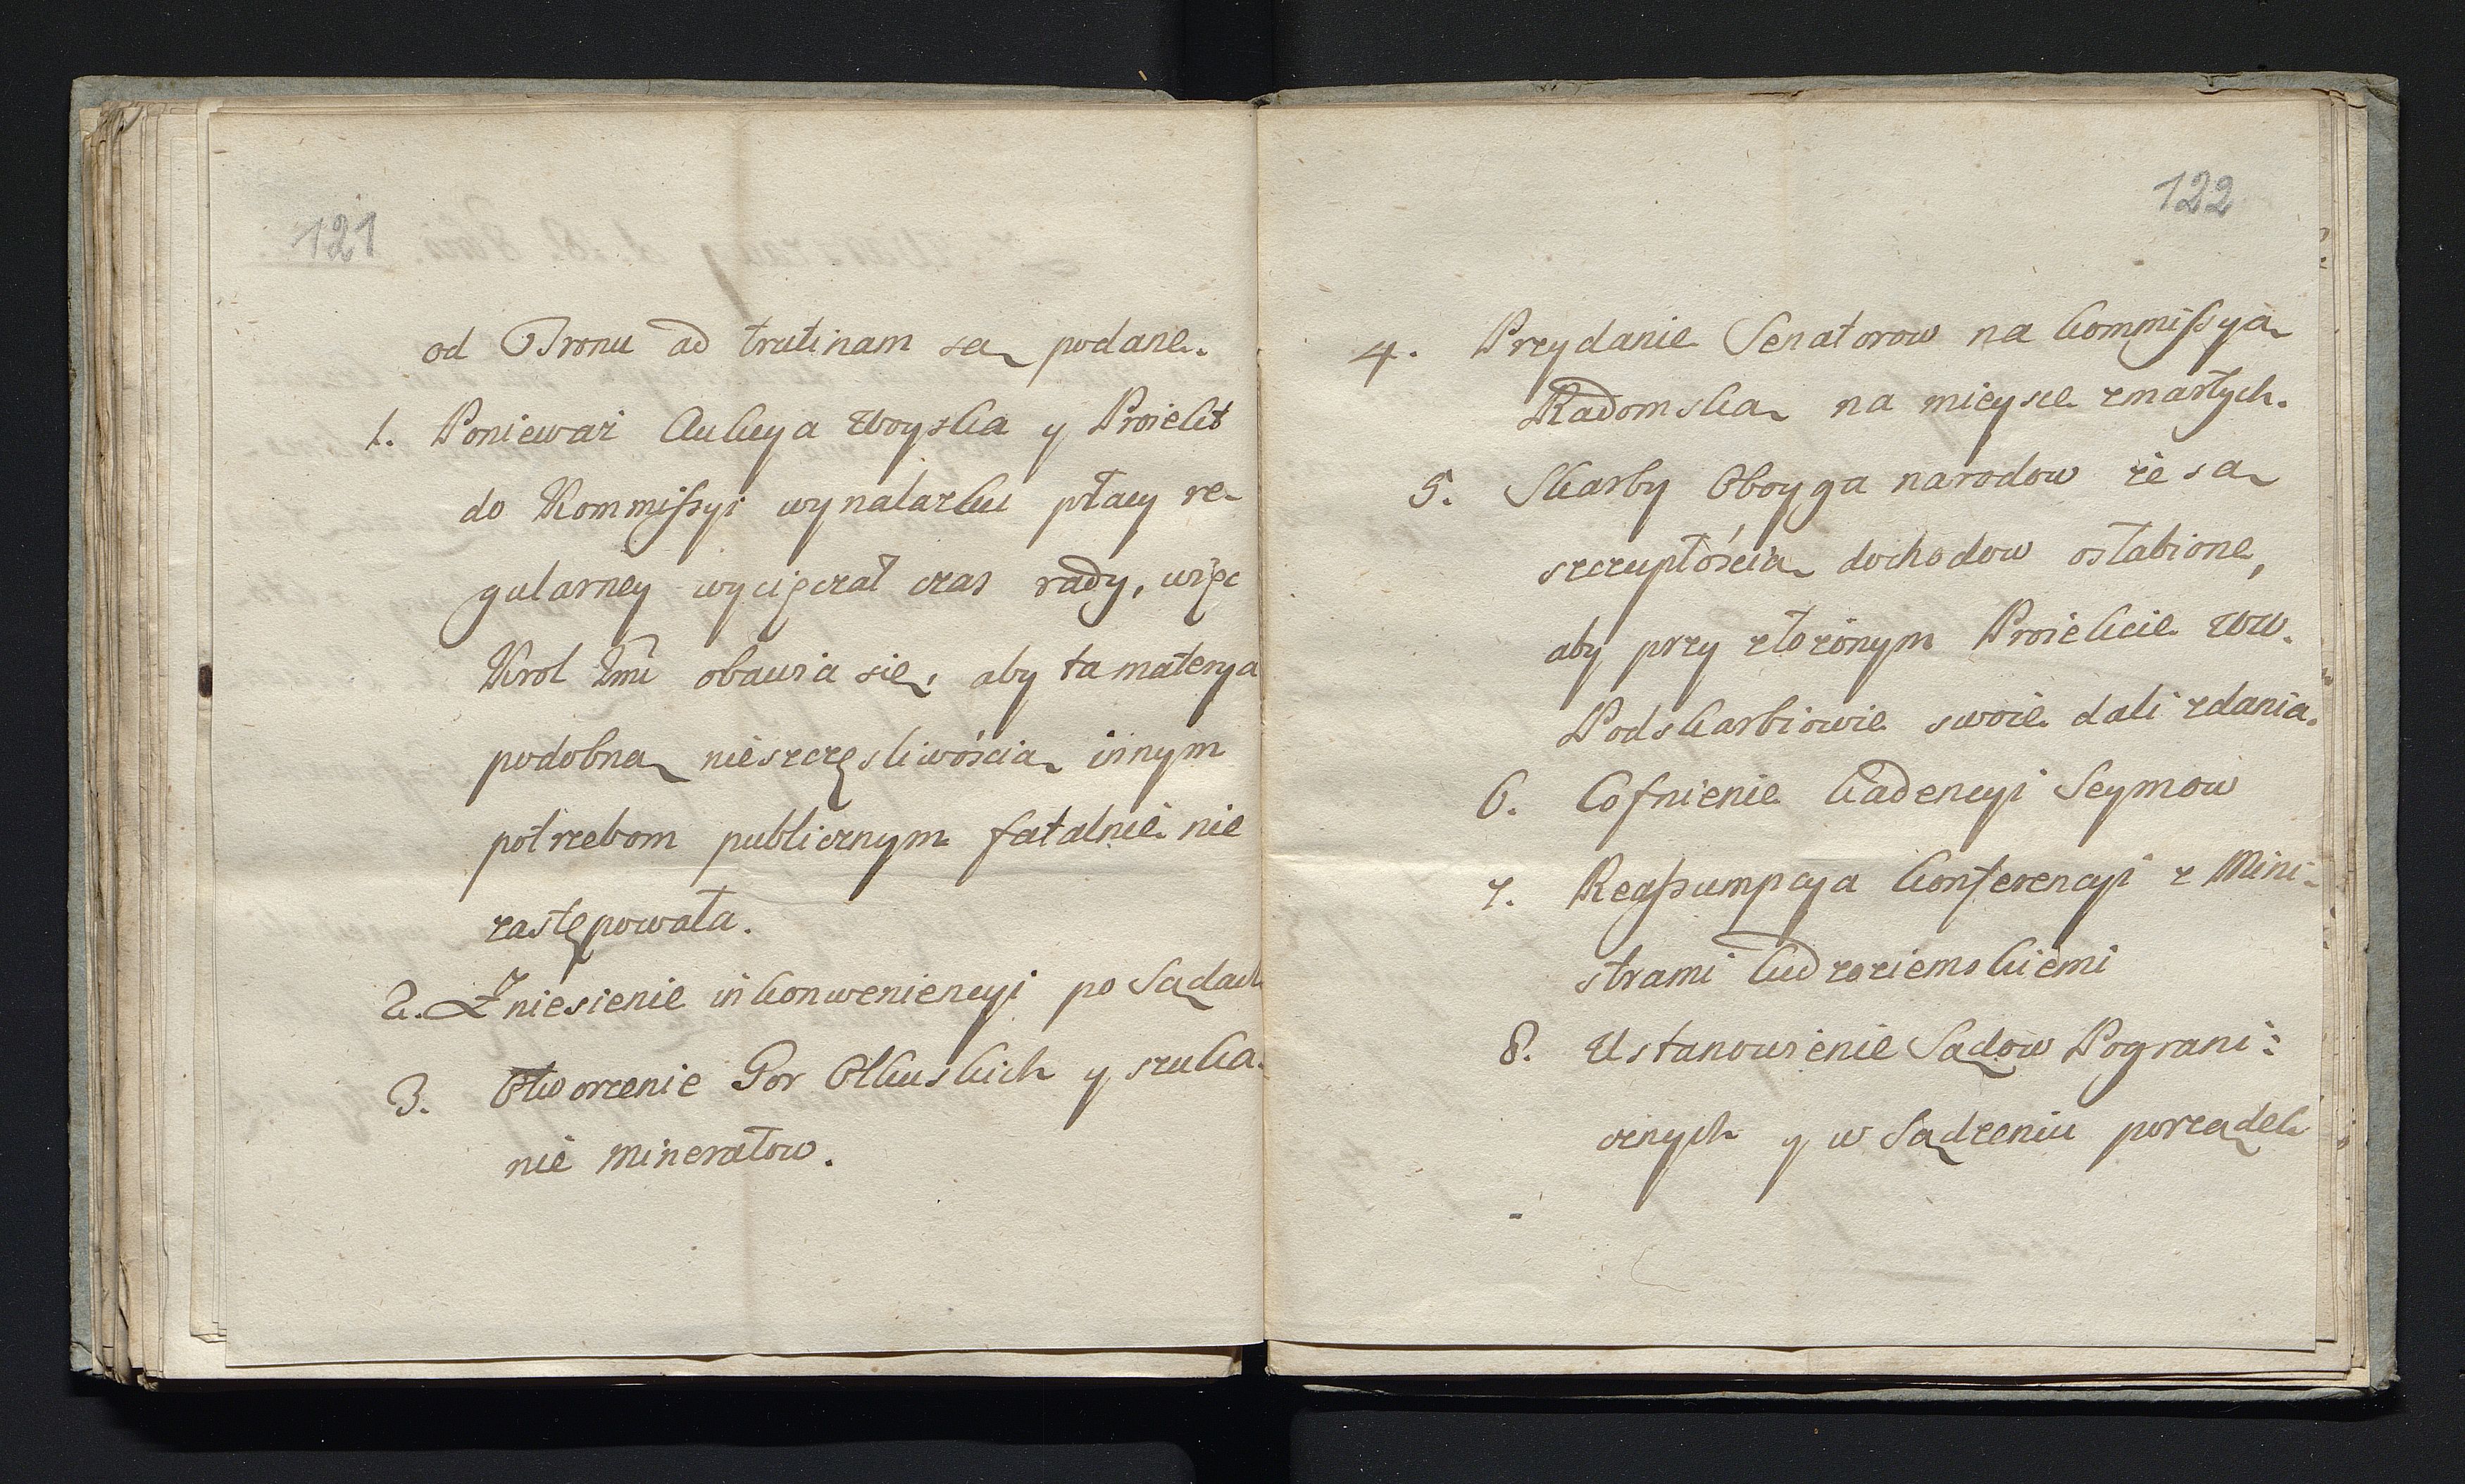 121
od Tronu ad trutinam są podane.
1. Poniewaz Aukcya Woyska y Proiekt
do Kommissyi wynalazku płacy re-
gularney wycięczał czas rady, więc
Krol Jmć obawia się, aby ta materya
podobną nieszczęsliwością innym
potrzebom publicznym fatalnie nie
zastępowała.
2. Zniesienie inkonweniencyi po Sądach
3. Otworzenie Gor Olkuskich y szuka-
nie minerałow.
122
4. Przydanie Senatorow na Kommissyą
Radomską na mieysce zmarłych.
5. Skarby Oboyga narodow że są
szczupłością dochodow osłabione,
aby przy złożonym Proiekcie WW.
Podskarbiowie swoie dali zdania.
6. Cofnienie Kadencyi Seymow
7. Reassumpcya Konferencyi z Mini-
strami Cudzoziemskiemi
8. Ustanowienie Sądow Pograni:
cznych y w Sądzeniu porządek